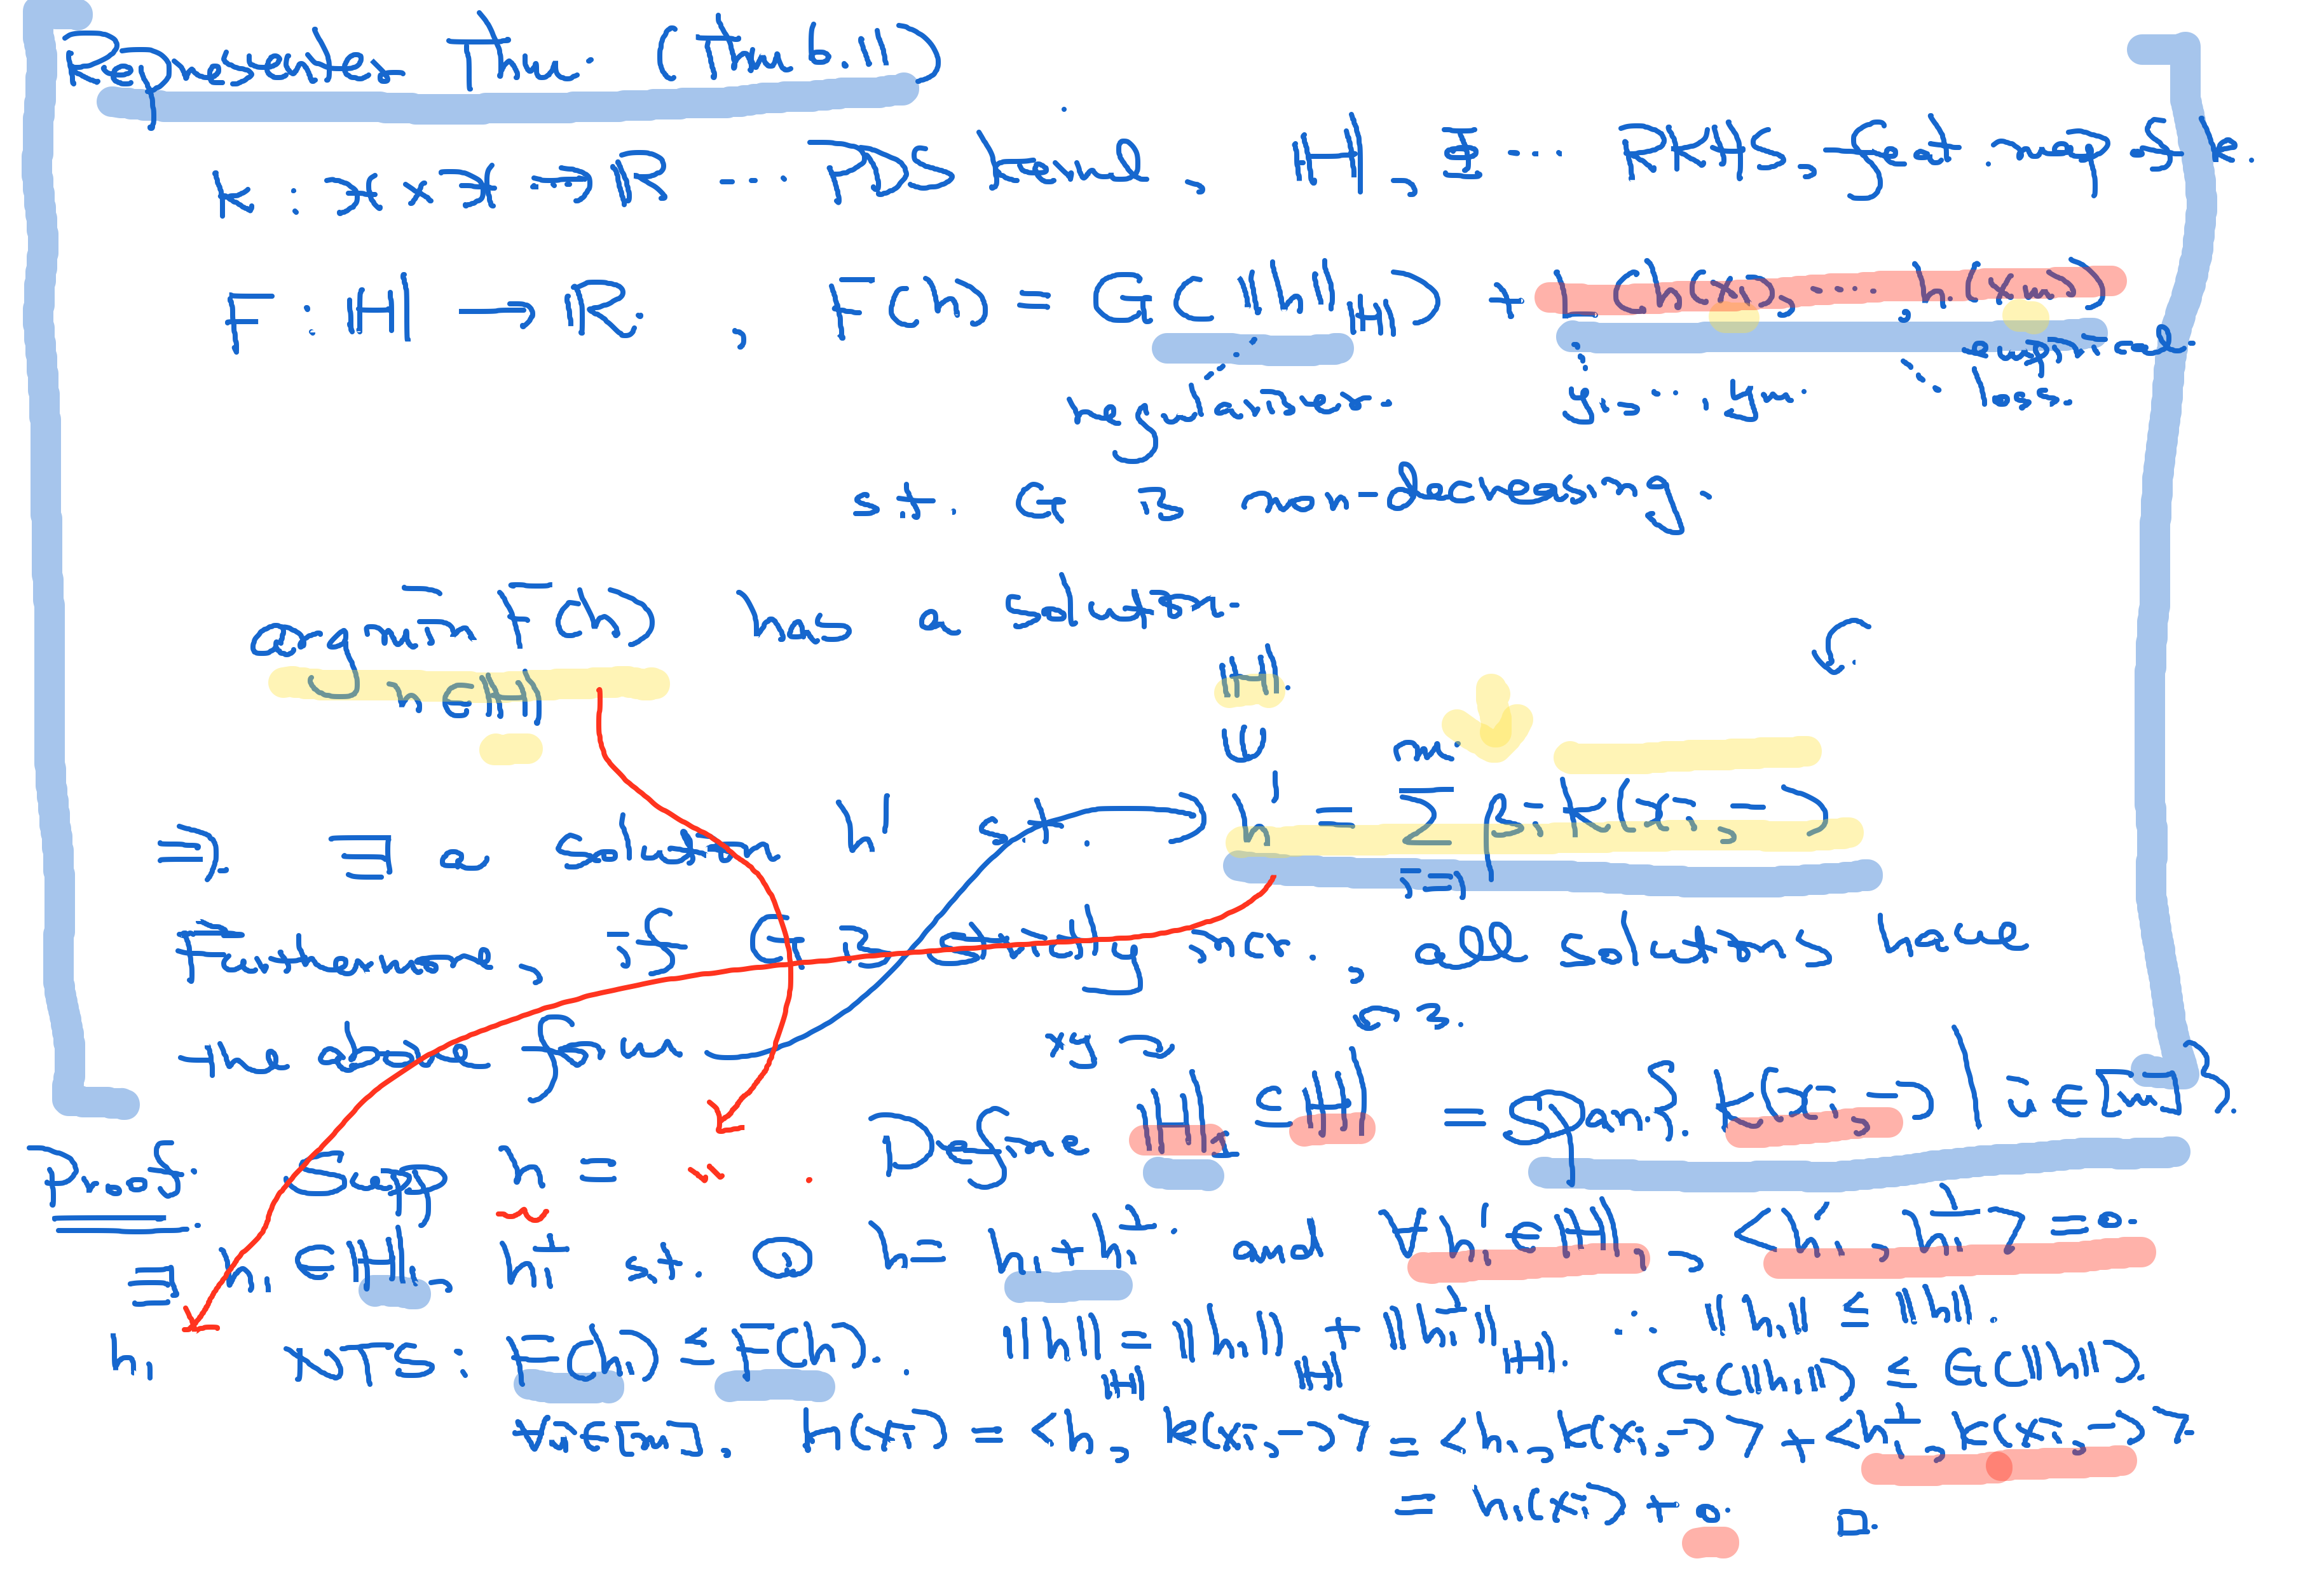 Representer Thm. (Thm 6.11)
K : X × X → ℝ ... PDS kernel, ℍ, Φ ... RKHS, feat. map of K.
F : ℍ → ℝ. , F(h) = G(‖h‖_ℍ) + L(h(x₁), ..., h(x_m))
regulariser. y₁, ..., y_m. empirical loss.
s.t. G is non-decreasing.
argmin_{h∈ℍ} F(h) has a solution.
ℍ.
∪
⇒ ∃ a solution h' s.t. h' = Σ_{i=1}^{m} β_i K(x_i, -)
Furthermore, if G is strictly incr., all solutions have
the above form
Proof. Supp h = ... . Define ℍ₁ ⊆ ℍ = Span{ k(x_i, -) | i ∈ [m] }.
∃ h₁ ∈ ℍ₁, h^⊥ s.t. h = h₁ + h^⊥. and ∀h' ∈ ℍ₁, <h', h^⊥> = 0.
h₁ NTS : F(h₁) ≤ F(h). ‖h‖_ℍ = ‖h₁‖_ℍ + ‖h^⊥‖_ℍ. ∴ ‖h₁‖ ≤ ‖h‖.
G(‖h₁‖) ≤ G(‖h‖).
∀i∈[m]. h(x_i) = <h, k(x_i, -)> = <h₁, k(x_i, -)> + <h^⊥, k(x_i, -)>
= h₁(x_i) + 0. □.